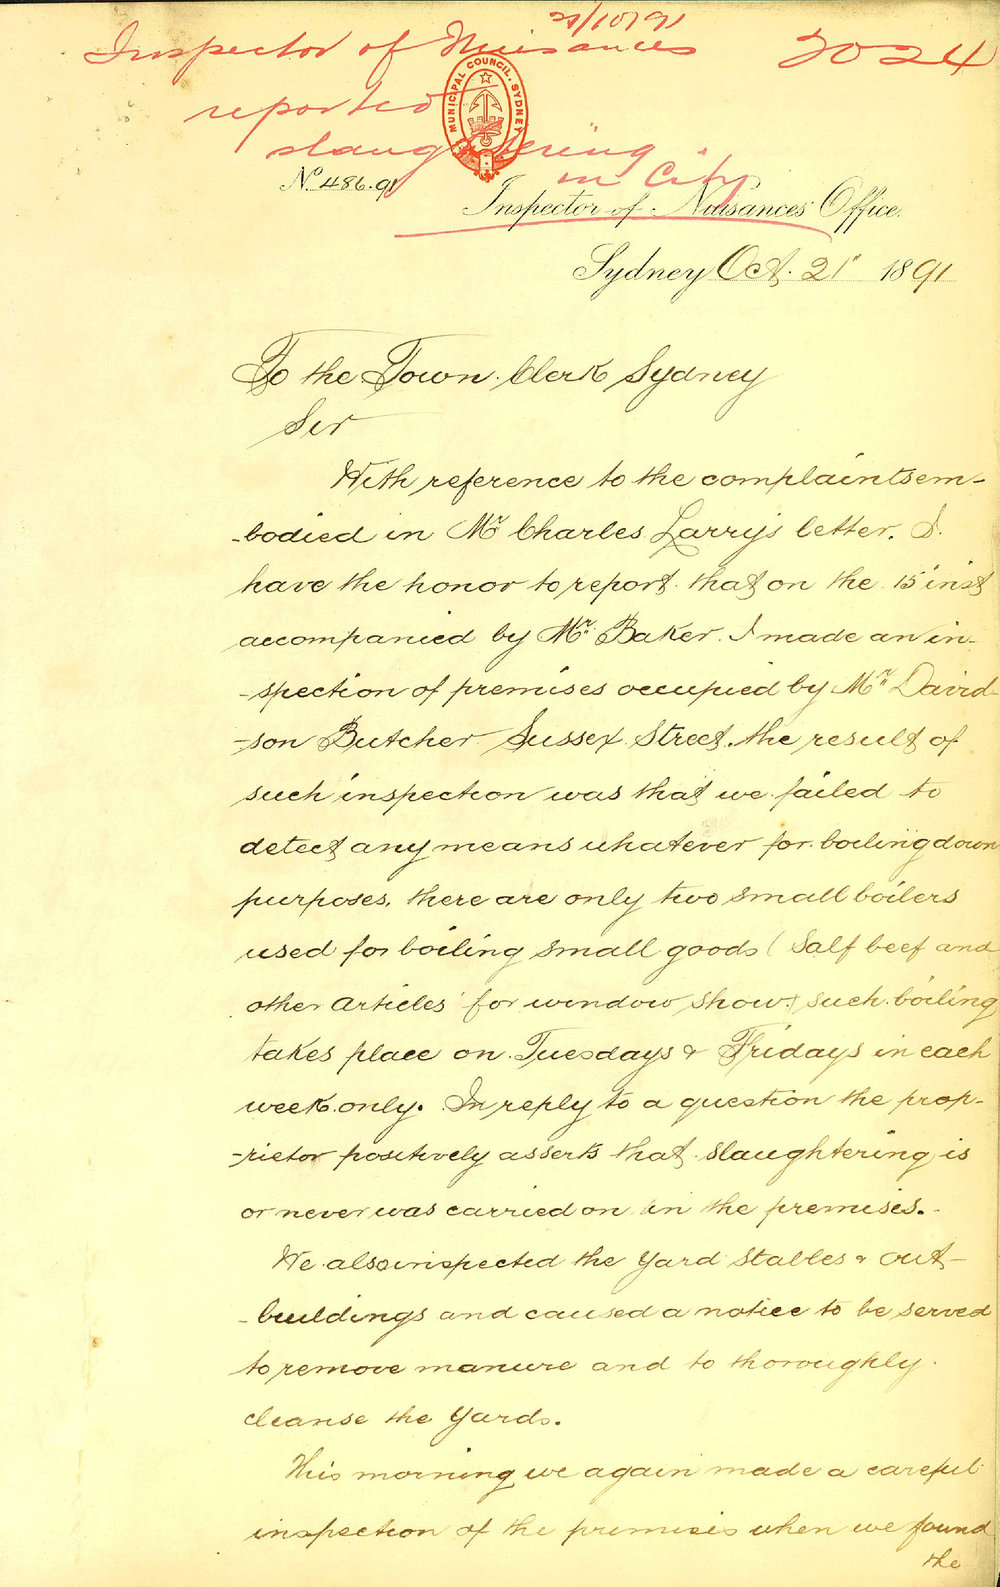 21/10/91
Inspector of Nuisances 2024
reported
slaughtering
in City
MUNICIPAL COUNCIL, SYDNEY
No. 486.91
Inspector of Nuisances Office.
Sydney Oct. 21" 1891
To the Town Clerk Sydney
Sir
With reference to the complaints em-
-bodied in Mr Charles Larry's letter. I.
have the honor to report that on the 15 inst
accompanied by Mr. Baker. I made an in-
-spection of premises occupied by Mr. David-
-son Butcher Sussex Street. the result of
such inspection was that we failed to
detect any means whatever for boiling down
purposes. there are only two small boilers
used for boiling small goods (Salt beef and
other articles for window show) such boiling
takes place on Tuesdays & Fridays in each
week only. In reply to a question the prop-
-rietor positively asserts that slaughtering is
or never was carried on in the premises.
We also inspected the yard stables & out-
-buildings and caused a notice to be served
to remove manure and to thoroughly
cleanse the yards.
This morning we again made a careful
inspection of the premises when we found
the